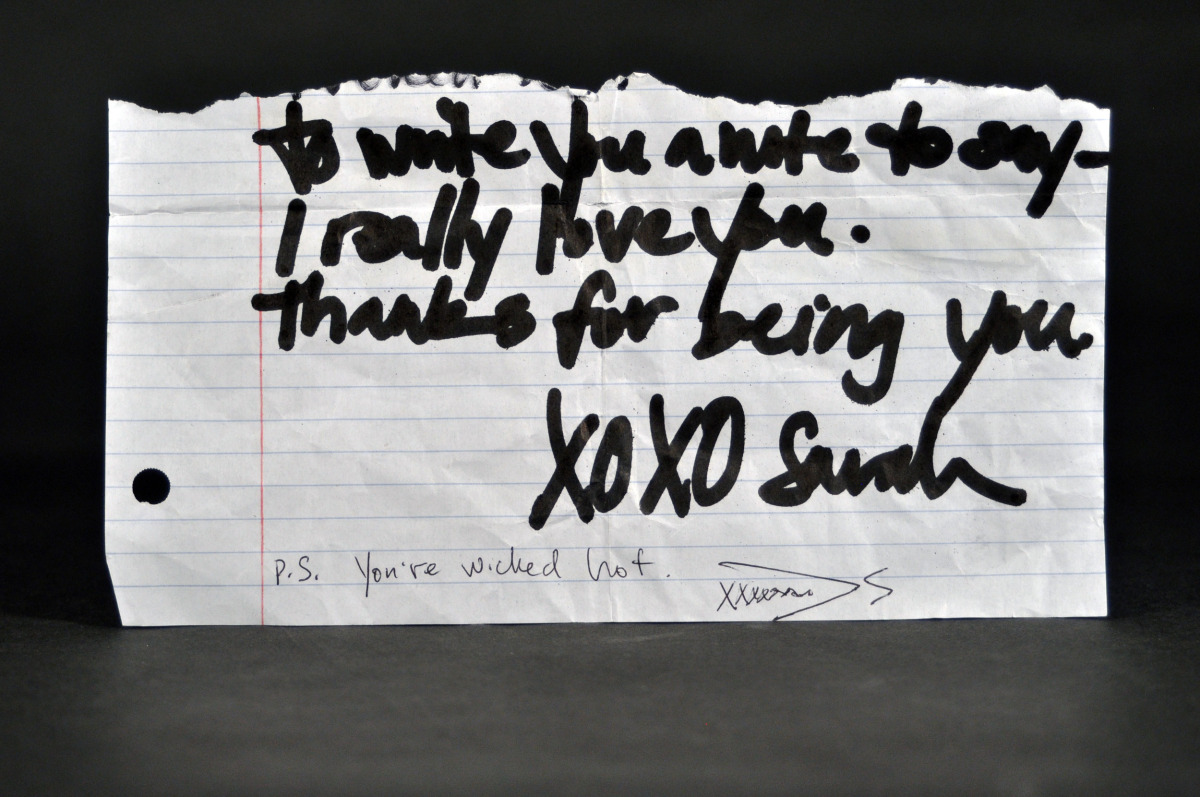 to write you a note to say-
I really love you.
thanks for being you.
XOXO Sarah
P.S. You're wicked hot.
S